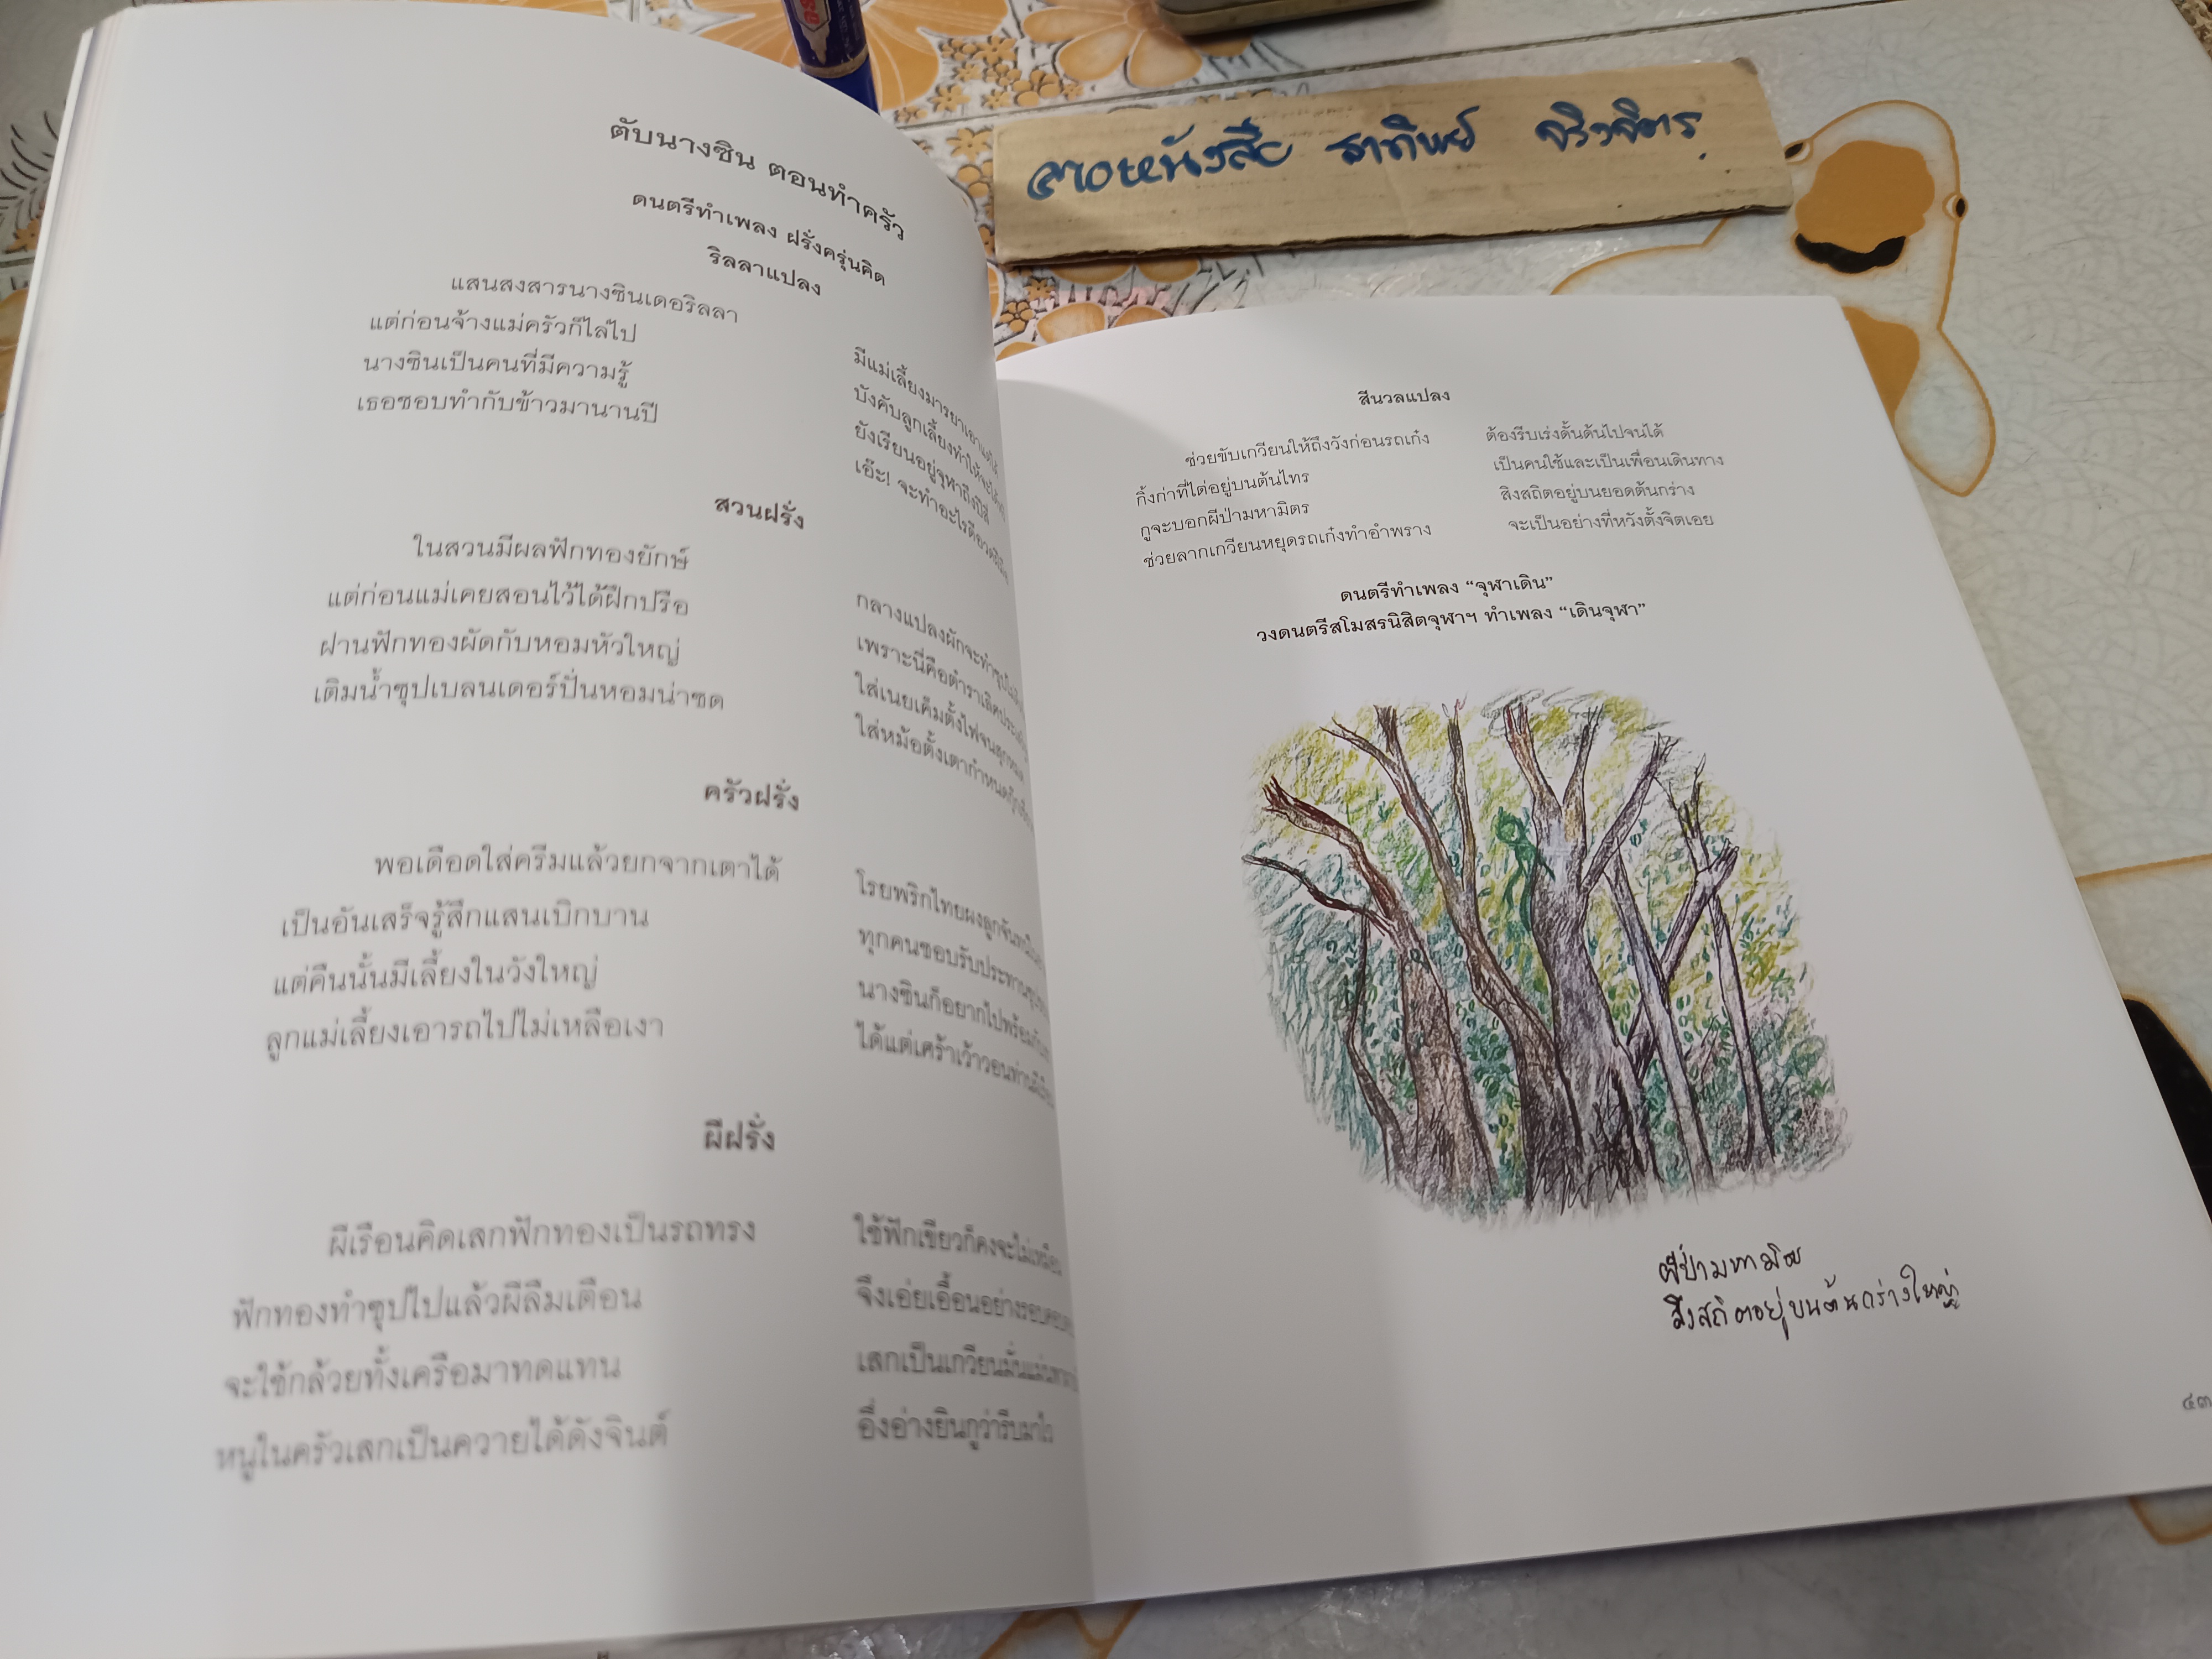 ตับนางซิน ตอนทำครัว
ดนตรีทำเพลง ฝรั่งครุ่นคิด
ริลลาแปลง
แสนสงสารนางซินเดอริลลา
มีแม่เลี้ยงมารยา
แต่ก่อนจ้างแม่ครัวก็ไล่ไป
บังคับลูกเลี้ยงทำให้
นางซินเป็นคนที่มีความรู้
ยังเรียนอยู่จุฬาถึงปีสี่
เธอชอบทำกับข้าวมานานปี
เอ๊ะ! จะทำอะไรดี
สวนฝรั่ง
ในสวนมีผลฟักทองยักษ์
กลางแปลงผักจะทำซุป
แต่ก่อนแม่เคยสอนไว้ได้ฝึกปรือ
เพราะนี่คือตำราเลิศ
ฝานฟักทองผัดกับหอมหัวใหญ่
ใส่เนยเค็มตั้งไฟจน
เติมน้ำซุปเบลนเดอร์ปั่นหอมน่าซด
ใส่หม้อตั้งเตากำหนด
ครัวฝรั่ง
พอเดือดใส่ครีมแล้วยกจากเตาได้
โรยพริกไทยผงลูกจันทน์
เป็นอันเสร็จรู้สึกแสนเบิกบาน
ทุกคนชอบรับประทาน
แต่คืนนั้นมีเลี้ยงในวังใหญ่
นางซินก็อยากไปพร้อม
ลูกแม่เลี้ยงเอารถไปไม่เหลือเงา
ได้แต่เศร้าเว้าวอน
ผีฝรั่ง
ผีเรือนคิดเสกฟักทองเป็นรถทรง
ใช้ฟักเขียวก็คงจะไม่เหมือน
ฟักทองทำซุปไปแล้วผีลืมเตือน
จึงเอ่ยเอื้อนอย่างรอบคอบ
จะใช้กล้วยทั้งเครือมาทดแทน
เสกเป็นเกวียนมั่นแม่น
หนูในครัวเสกเป็นควายได้ดังจินต์
อึ่งอ่างยินกูว่ารีบมาไว
ลายหนังสือ ธาทิพย์ จริงจิตร
สีนวลแปลง
ช่วยขับเกวียนให้ถึงวังก่อนรถเก๋ง
ต้องรีบเร่งดั้นด้นไปจนได้
กิ้งก่าที่ไต่อยู่บนต้นไทร
เป็นคนใช้และเป็นเพื่อนเดินทาง
กูจะบอกผีป่ามหามิตร
สิงสถิตอยู่บนยอดต้นกร่าง
ช่วยลากเกวียนหยุดรถเก๋งทำอำพราง
จะเป็นอย่างที่หวังตั้งจิตเอย
ดนตรีทำเพลง “จุฬาเดิน”
วงดนตรีสโมสรนิสิตจุฬาฯ ทำเพลง “เดินจุฬา”
ผีป่ามหามิตร
สิงสถิตอยู่บนต้นกร่างใหญ่
๔๓